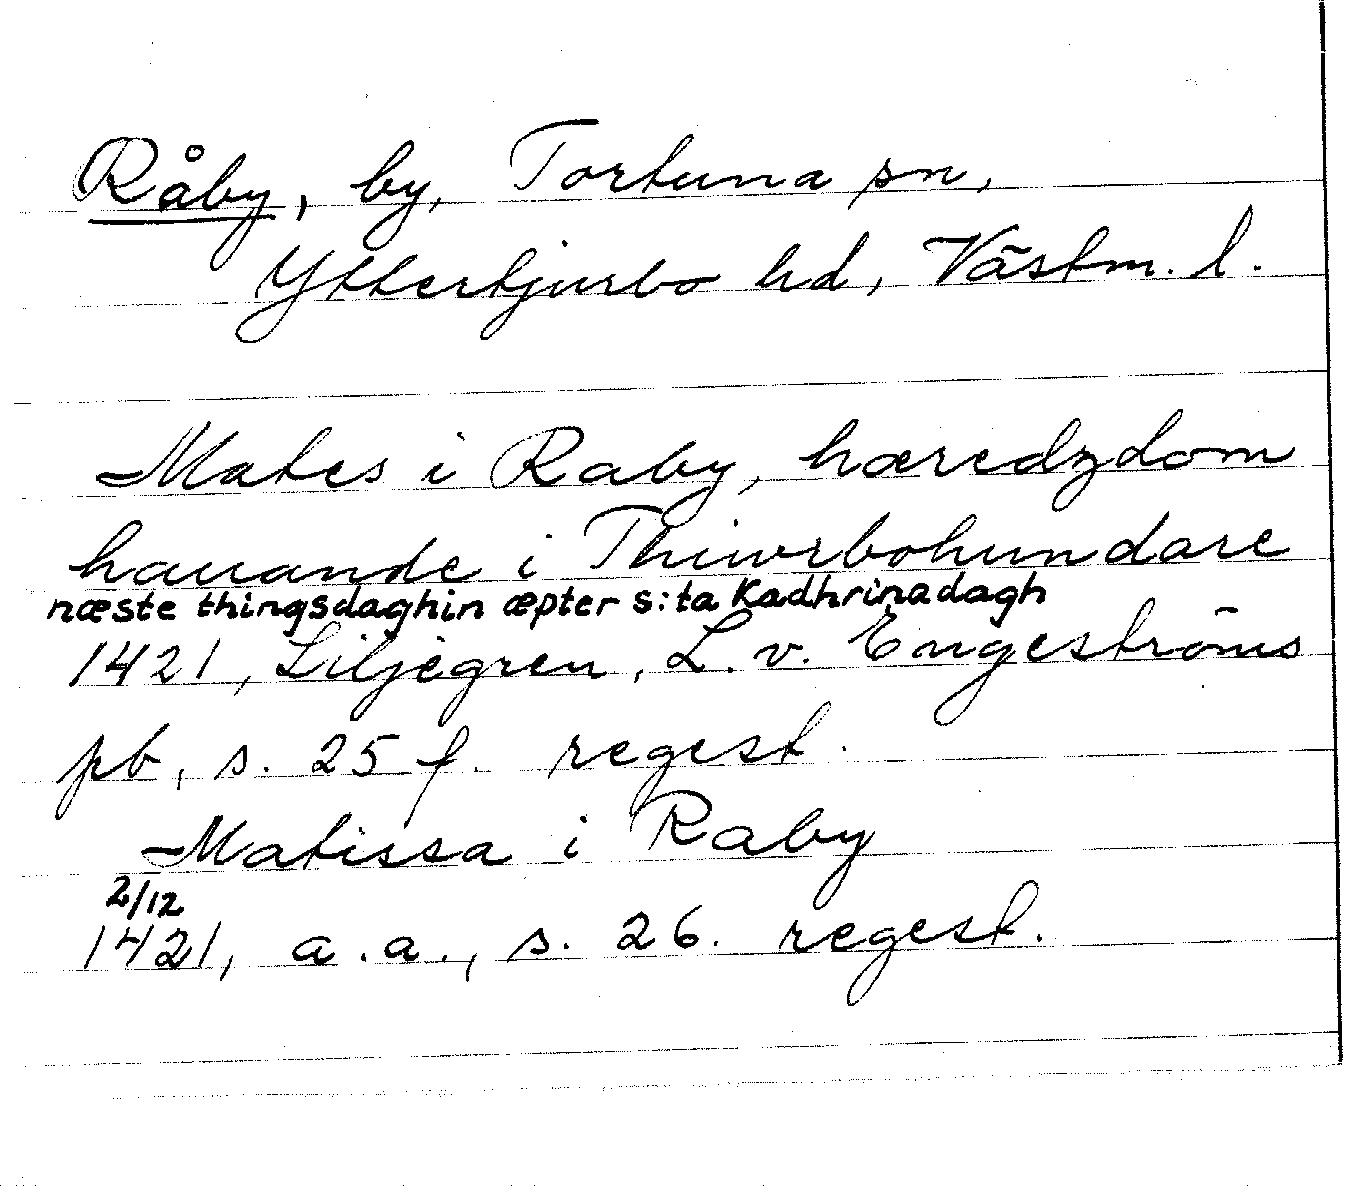 Råby, by, Tortuna sn,
Yttertjurbo hd, Västm. l.
Mates i Raby, hæredzdom
hauande i Thiurbohundare
næste thingsdaghin æpter s:ta Kadhrinadagh
1421, Liljegren, L. v. Engeströms
pb, s. 25 f. regest.
Matissa i Raby
2/12
1421, a.a., s. 26. regest.